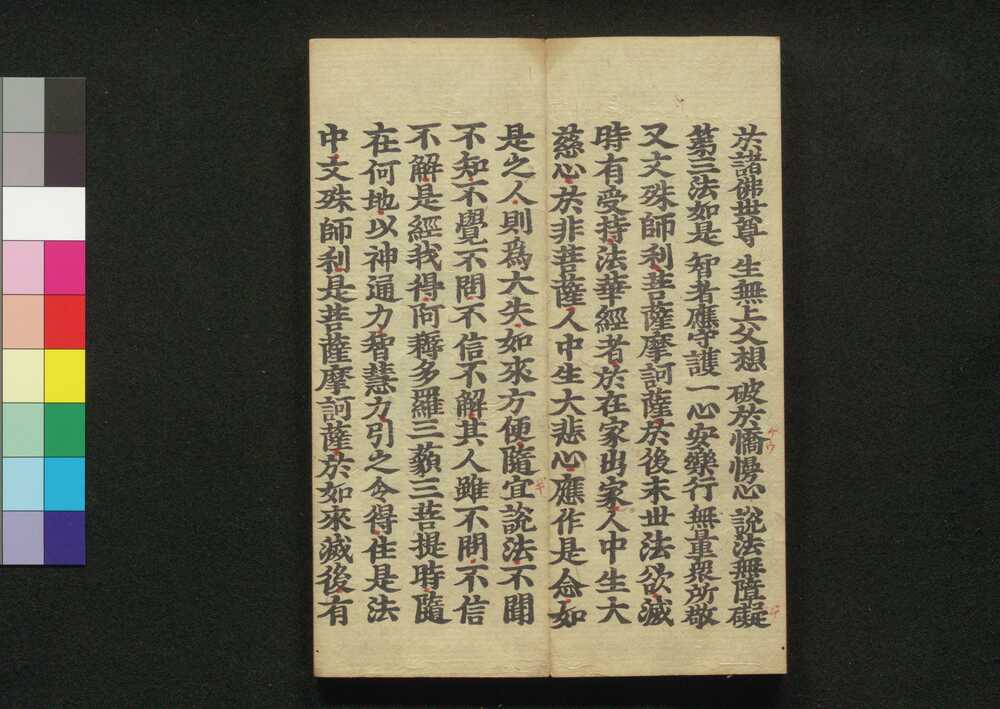 於諸佛世尊 生無上父想 破於憍慢心 說法無障礙
第三法如是 智者應守護 一心安樂行 無量衆所敬
又文殊師利菩薩摩訶薩於後末世法欲滅
時有受持法華經者於在家出家人中生大
慈心於非菩薩人中生大悲心應作是念如
是之人則爲大失如來方便隨宜說法不聞
不知不覺不問不信不解其人雖不問不信
不解是經我得阿耨多羅三藐三菩提時隨
在何地以神通力智慧力引之令得住是法
中文殊師利是菩薩摩訶薩於如來滅後有